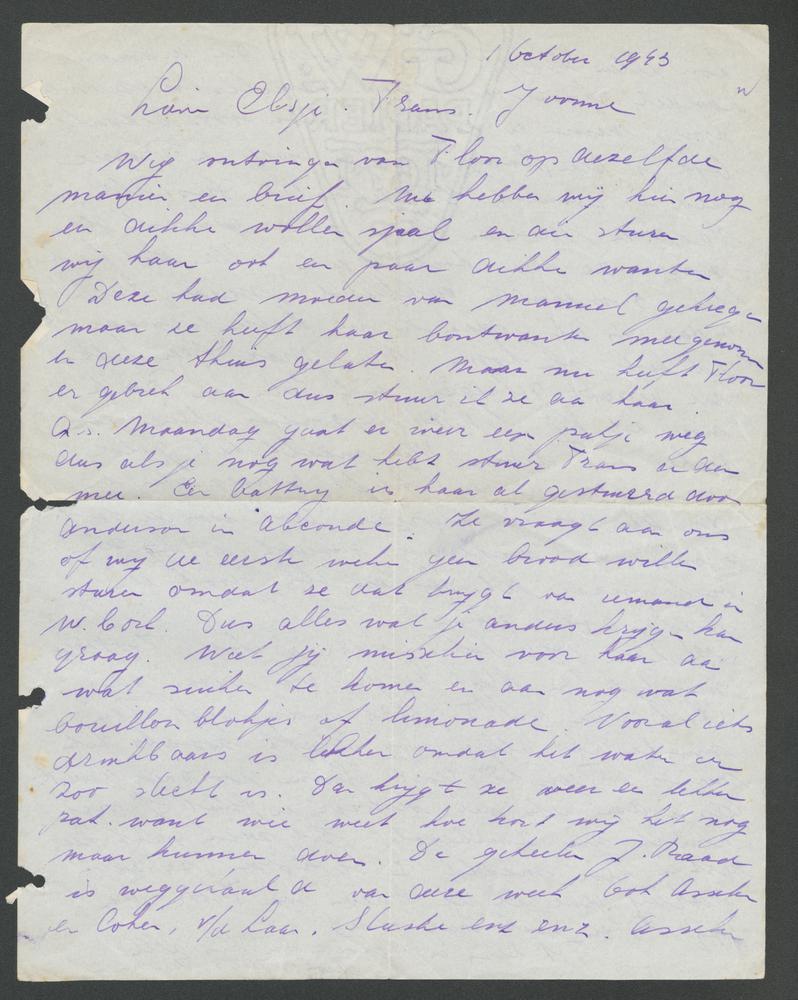 1 October 1943
Lieve Elsje. Frans. Yvonne
Wij ontvingen van Floor op dezelfde
manier een brief. Nu hebben wij hier nog
een dikke wollen sjaal en die sturen
wij haar ook en paar dikke wanten
Deze had moeder van Manuel gekregen
maar ze heeft haar bontwanten meegenomen
en deze thuis gelaten. Maar nu heeft Floor
er gebrek aan dus stuur ik ze aan haar.
a.s. Maandag gaat er weer een pakje weg
dus als je nog wat hebt stuur Frans er dan
mee. Een battery is haar al gestuurd door
Anderson in Abcoude. Ze vraagt aan ons
of wij de eerste weken geen brood willen
sturen omdat ze dat krygt van iemand in
W. Bork. Dus alles wat je anders krijgen kan
graag. Weet jij misschien voor haar aan
wat suiker te komen en aan nog wat
bouillon blokjes of limonade. Vooral iets
drinkbaars is lekker omdat het water er
zoo slecht is. Dan krygt ze weer een lekker
pak. want wie weet hoe kort wij het nog
maar kunnen doen. De geheele J. Raad
is weggehaald van deze week ook Asscher
en Cohen, v/d Laan, Sluske enz enz. Asscher